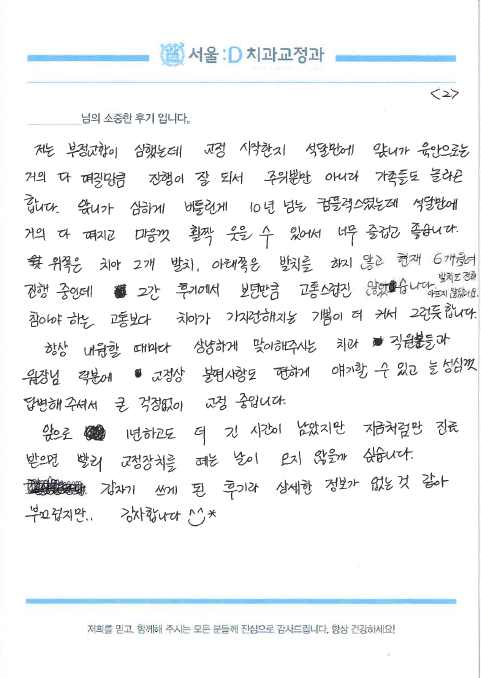 서울:D 치과교정과
<2>
님의 소중한 후기 입니다.
저는 부정교합이 심했는데 교정 시작한지 석달만에 앞니가 육안으로는
거의 다 펴질만큼 진행이 잘 되서 주위분만 아니라 가족들도 놀라곤
합니다. 앞니가 심하게 비틀린게 10년 넘는 컴플렉스였는데 석달만에
거의 다 펴지고 마음껏 활짝 웃을 수 있어서 너무 즐겁고 좋습니다.
위쪽은 치아 2개 발치, 아래쪽은 발치를 하지 않고 현재 6개월째
진행 중인데 그간 후기에서 보던만큼 고통스럽진 않았습니다. 발치도 전혀
아프지 않았어요.
참아야 하는 고통보다 치아가 가지런해지는 기쁨이 더 커서 그런듯 합니다.
항상 내원할 때마다 상냥하게 맞이해주시는 치과 직원분들과
원장님 덕분에 교정상 불편사항도 편하게 얘기할 수 있고 늘 성심껏
답변해 주셔서 큰 걱정없이 교정 중입니다.
앞으로 1년하고도 더 긴 시간이 남았지만 지금처럼만 진료
받으면 빨리 교정장치를 떼는 날이 오지 않을까 싶습니다.
갑자기 쓰게 된 후기라 상세한 정보가 없는 것 같아
부끄럽지만.. 감사합니다 ^^*
저희를 믿고, 함께해 주시는 모든 분들께 진심으로 감사드립니다. 항상 건강하세요!